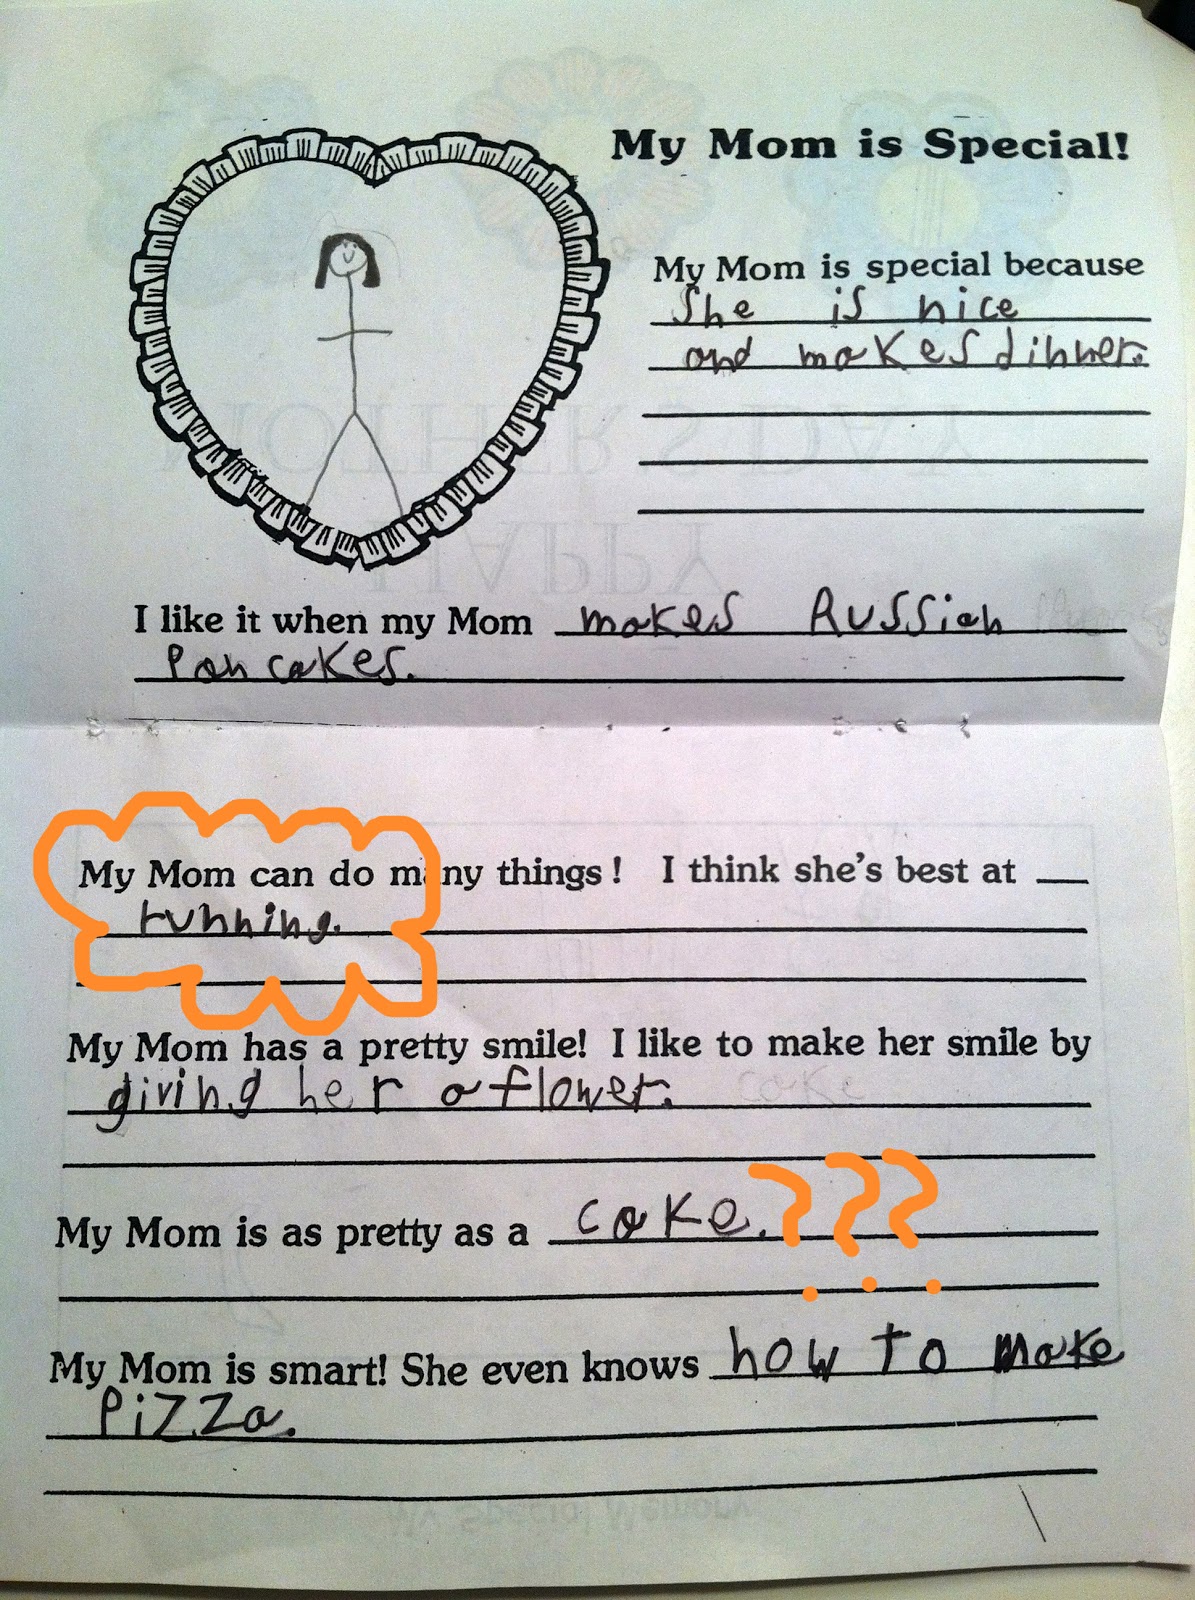 My Mom is Special!
My Mom is special because
She is nice
and makes dinner.
I like it when my Mom makes Russian
Pancakes.
My Mom can do many things! I think she's best at
running.
My Mom has a pretty smile! I like to make her smile by
giving her a flower.
cake
My Mom is as pretty as a cake. ???
My Mom is smart! She even knows how to make
Pizza.
HAPPY
MOTHER'S DAY
My Special Memory